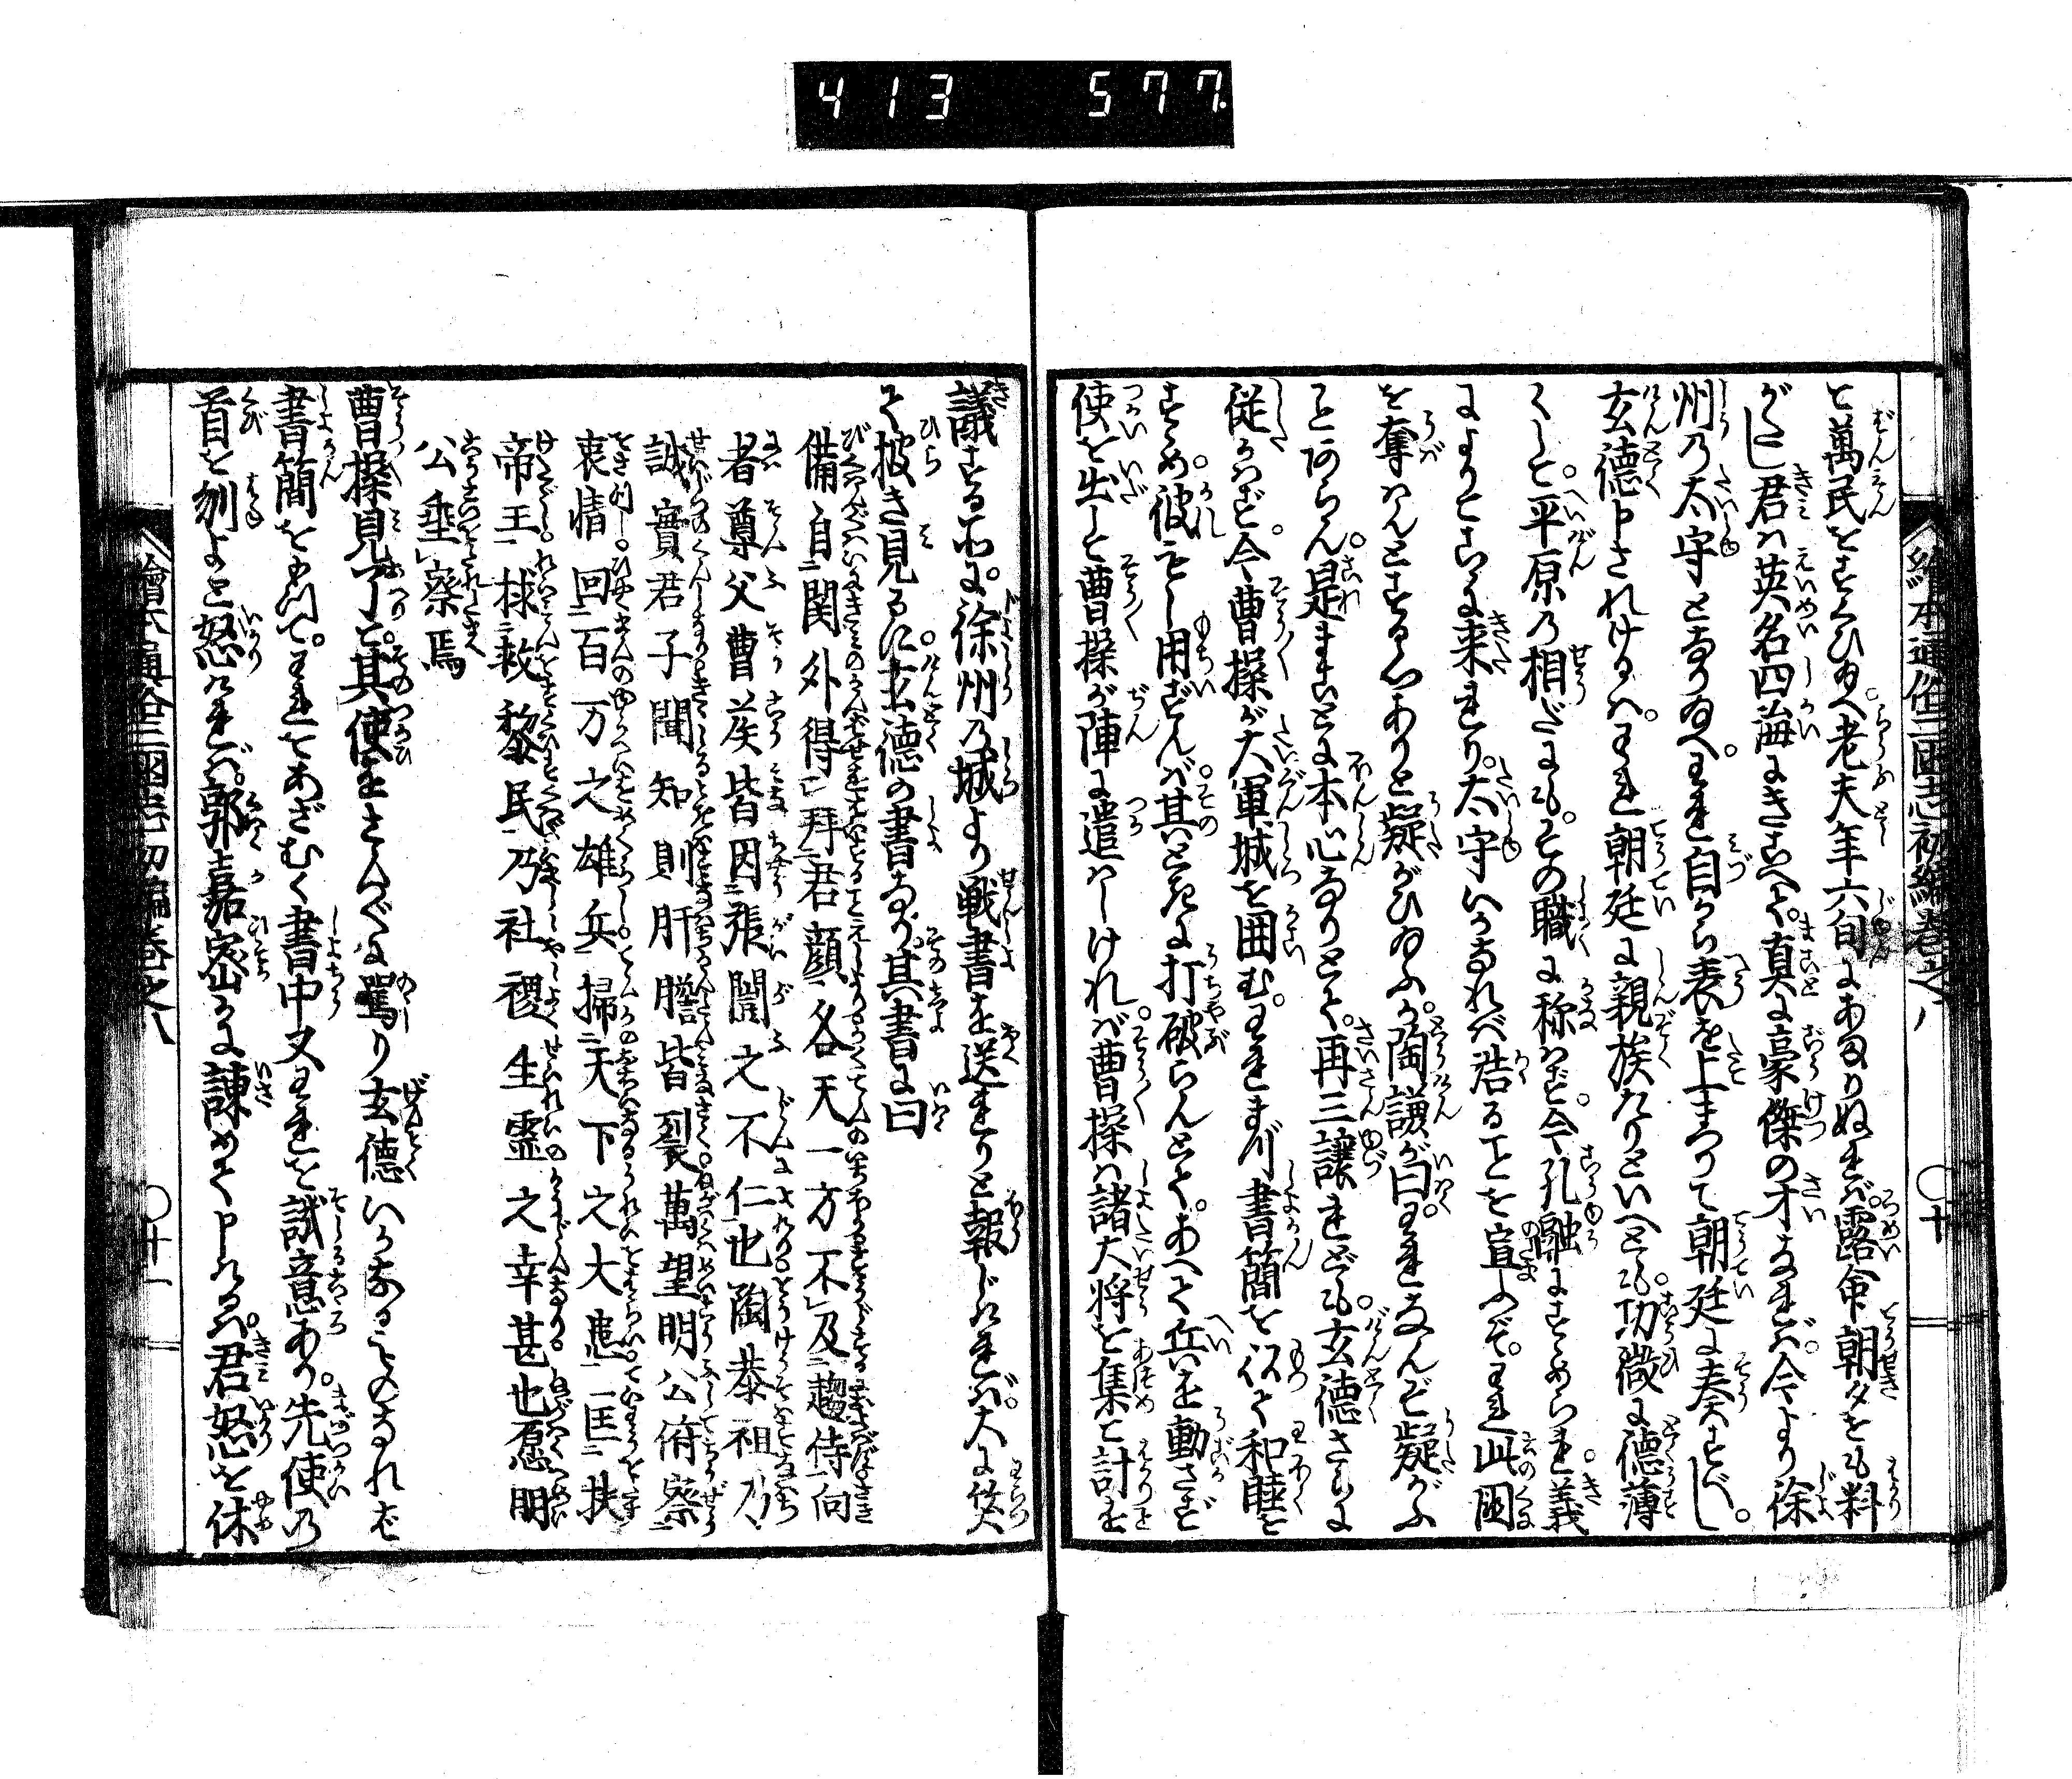 413 577
繪本通俗三国志初編巻之八 〇十
と萬民をすくひ給へ老夫年六旬にあまりぬれば露命朝夕をも料
がたし君は英名四海にきこえて真に豪傑の才なれば今より徐
州の太守となり給へわれ自ら表を上まつりて朝廷に奏すべし
玄徳申されけるはわれ朝廷に親族たりといへども功微に徳薄
くして平原の相だにもその職に称はず今孔融にすゝめられ義
によりてこゝに来れり太守いかなれバ若ることを宣ふぞわれ此国
を奪はんとする心ありと疑がひ給ふか陶謙が曰われなんぞ疑がふ
ことあらん是まことに本心なりとて再三譲れども玄徳さらに
従がはず今曹操が大軍城を囲むわれまづ書簡を以て和睦を
すゝめ彼もし用ずんば其ときに打破らんとてあへて兵を動さず
使を出して曹操が陣に遣はしければ曹操は諸大将を集て計を
議する所に徐州の城より戦書を送れりと報じければ大に笑
て披き見るに玄徳の書なり其書に曰
備自關外得拜君顔各天一方不及趨侍向
者尊父曹侯皆因張闓之不仁也陶恭祖乃
誠實君子聞知則肝膽皆裂萬望明公俯察
衷情回百万之雄兵掃天下之大患匡扶
帝王拯救黎民乃社稷生霊之幸甚也愿明
公垂察焉
曹操見了て其使をさんざんに罵り玄徳いかなるものなれば
書簡を以てわれをあざむく書中又われを誠意あり先使の
首を刎よと怒りければ郭嘉密かに諫めて申けるは君怒を休
繪本通俗三國志初編巻之八 〇十一